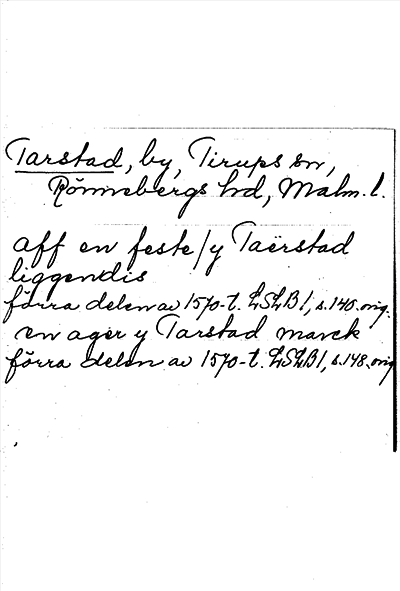 Tarstad, by, Tirups sn,
Rönnebergs hd, Malm. l.
aff en feste/y Taërstad
liggendis
förra delen av 1570-t. LSLB 1, s. 140. orig.
en ager y Tarstad marck
förra delen av 1570-t. LSLB 1, s. 148. orig